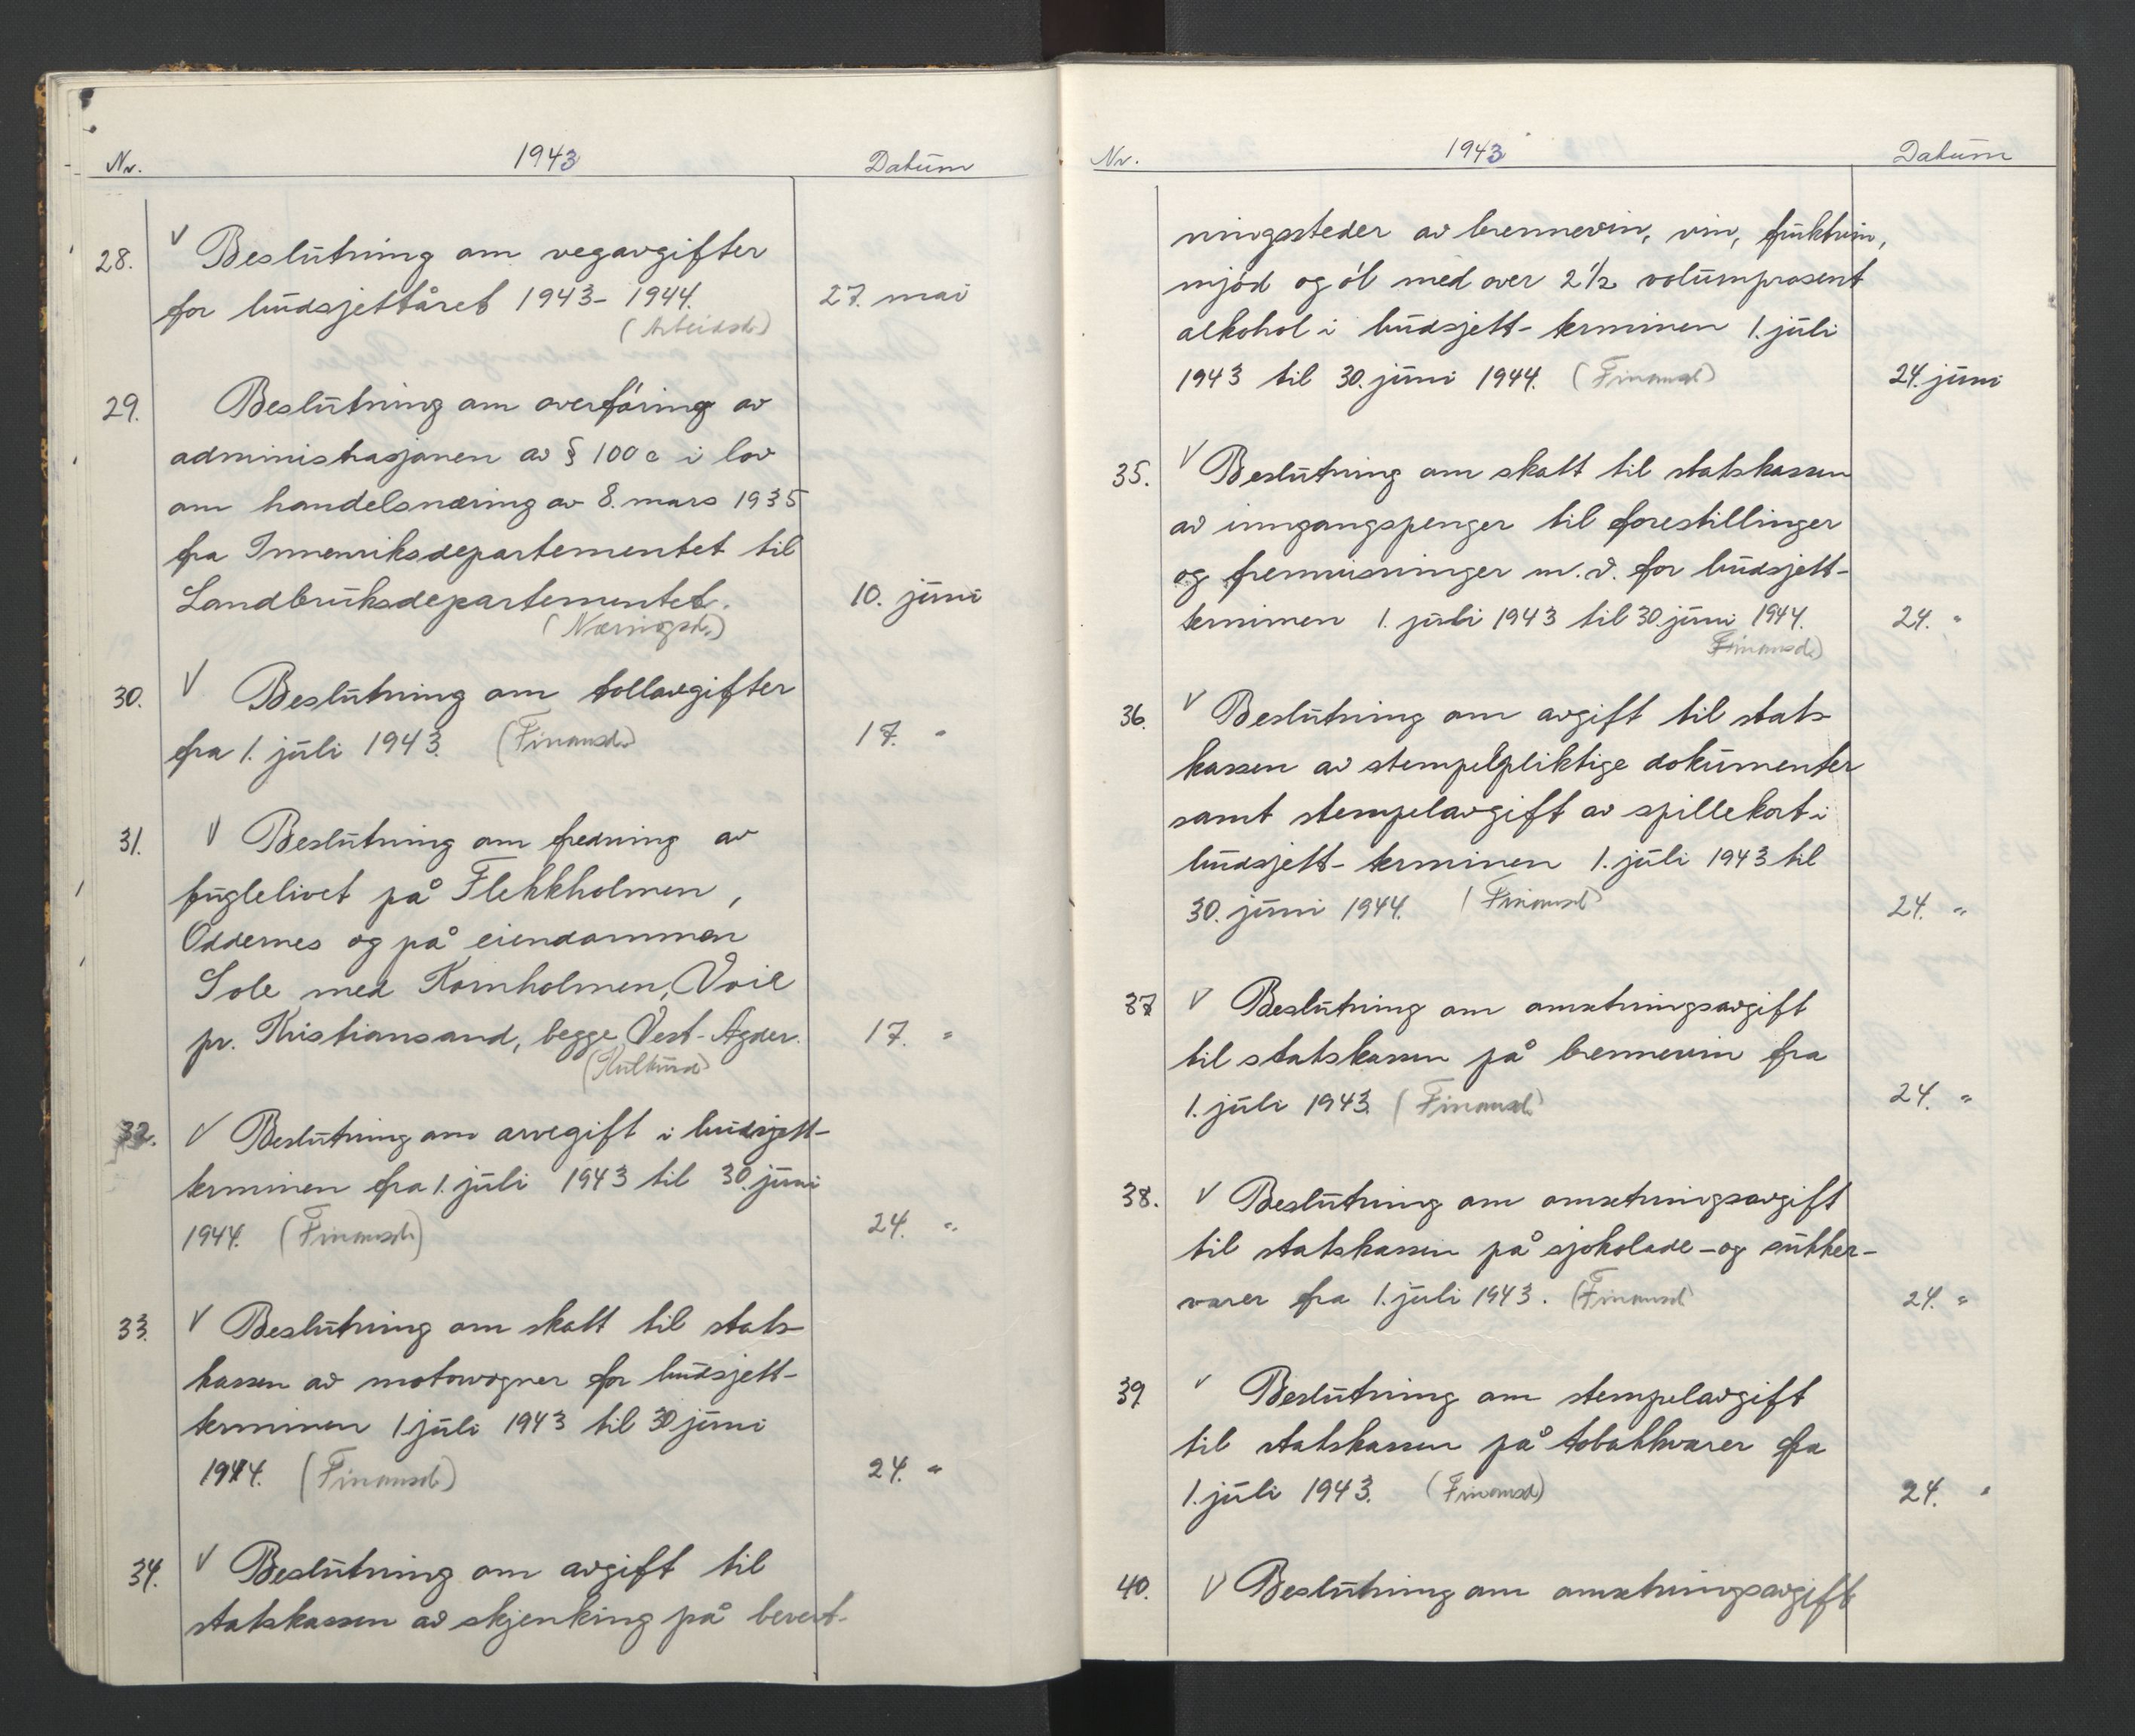 Nr. 1943 Datum
28. V Beslutning om vegavgifter
for budsjettåret 1943-1944. 27. mai
(Arbeidsd.)
29. Beslutning om overføring av
administrasjonen av § 100 c i lov
om handelsnæring av 8. mars 1935
fra Innenriksdepartementet til
Landbruksdepartementet. 10. juni
(Næringsd.)
30. V Beslutning om tollavgifter
fra 1. juli 1943. (Finansd.) 17. "
31. V Beslutning om fredning av
fuglelivet på Flekkholmen,
Oddernes og på eiendommen
Sole med Kornholmen, Voie
pr. Kristiansand, begge Vest-Agder. 17. "
(Kulturd)
32. V Beslutning om arvegift i budsjett-
terminen fra 1. juli 1943 til 30. juni
1944. (Finansd.) 24. "
33. V Beslutning om skatt til stats-
kassen av motorvogner for budsjett-
terminen 1 juli 1943 til 30 juni
1944. (Finansd.) 24. "
34. V Beslutning om avgift til
statskassen av skjenking på bevert-
Nr. 1943 Datum
ningssteder av brennevin, vin, fruktvin,
mjød og øl med over 2 1/2 volumprosent
alkohol i budsjett-terminen 1. juli
1943 til 30. juni 1944. (Finansd) 24. juni
35. V Beslutning om skatt til statskassen
av inngangspenger til forestillinger
og fremvisninger m.v. for budsjett-
terminen 1. juli 1943 til 30. juni 1944. 24. "
Finansd.)
36. V Beslutning om avgift til stats-
kassen av stempelpliktige dokumenter
samt stempelavgift av spillekort i
budsjett-terminen 1. juli 1943 til
30. juni 1944. (Finansd) 24. "
37 V Beslutning om omsetningsavgift
til statskassen på brennevin fra
1. juli 1943. (Finansd.) 24. "
38. V Beslutning om omsetningsavgift
til statskassen på sjokolade- og sukker-
varer fra 1. juli 1943. (Finansd 24. "
39 V Beslutning om stempelavgift
til statskassen på tobakkvarer fra
1. juli 1943. (Finansd) 24. "
40. V Beslutning om omsetningsavgift